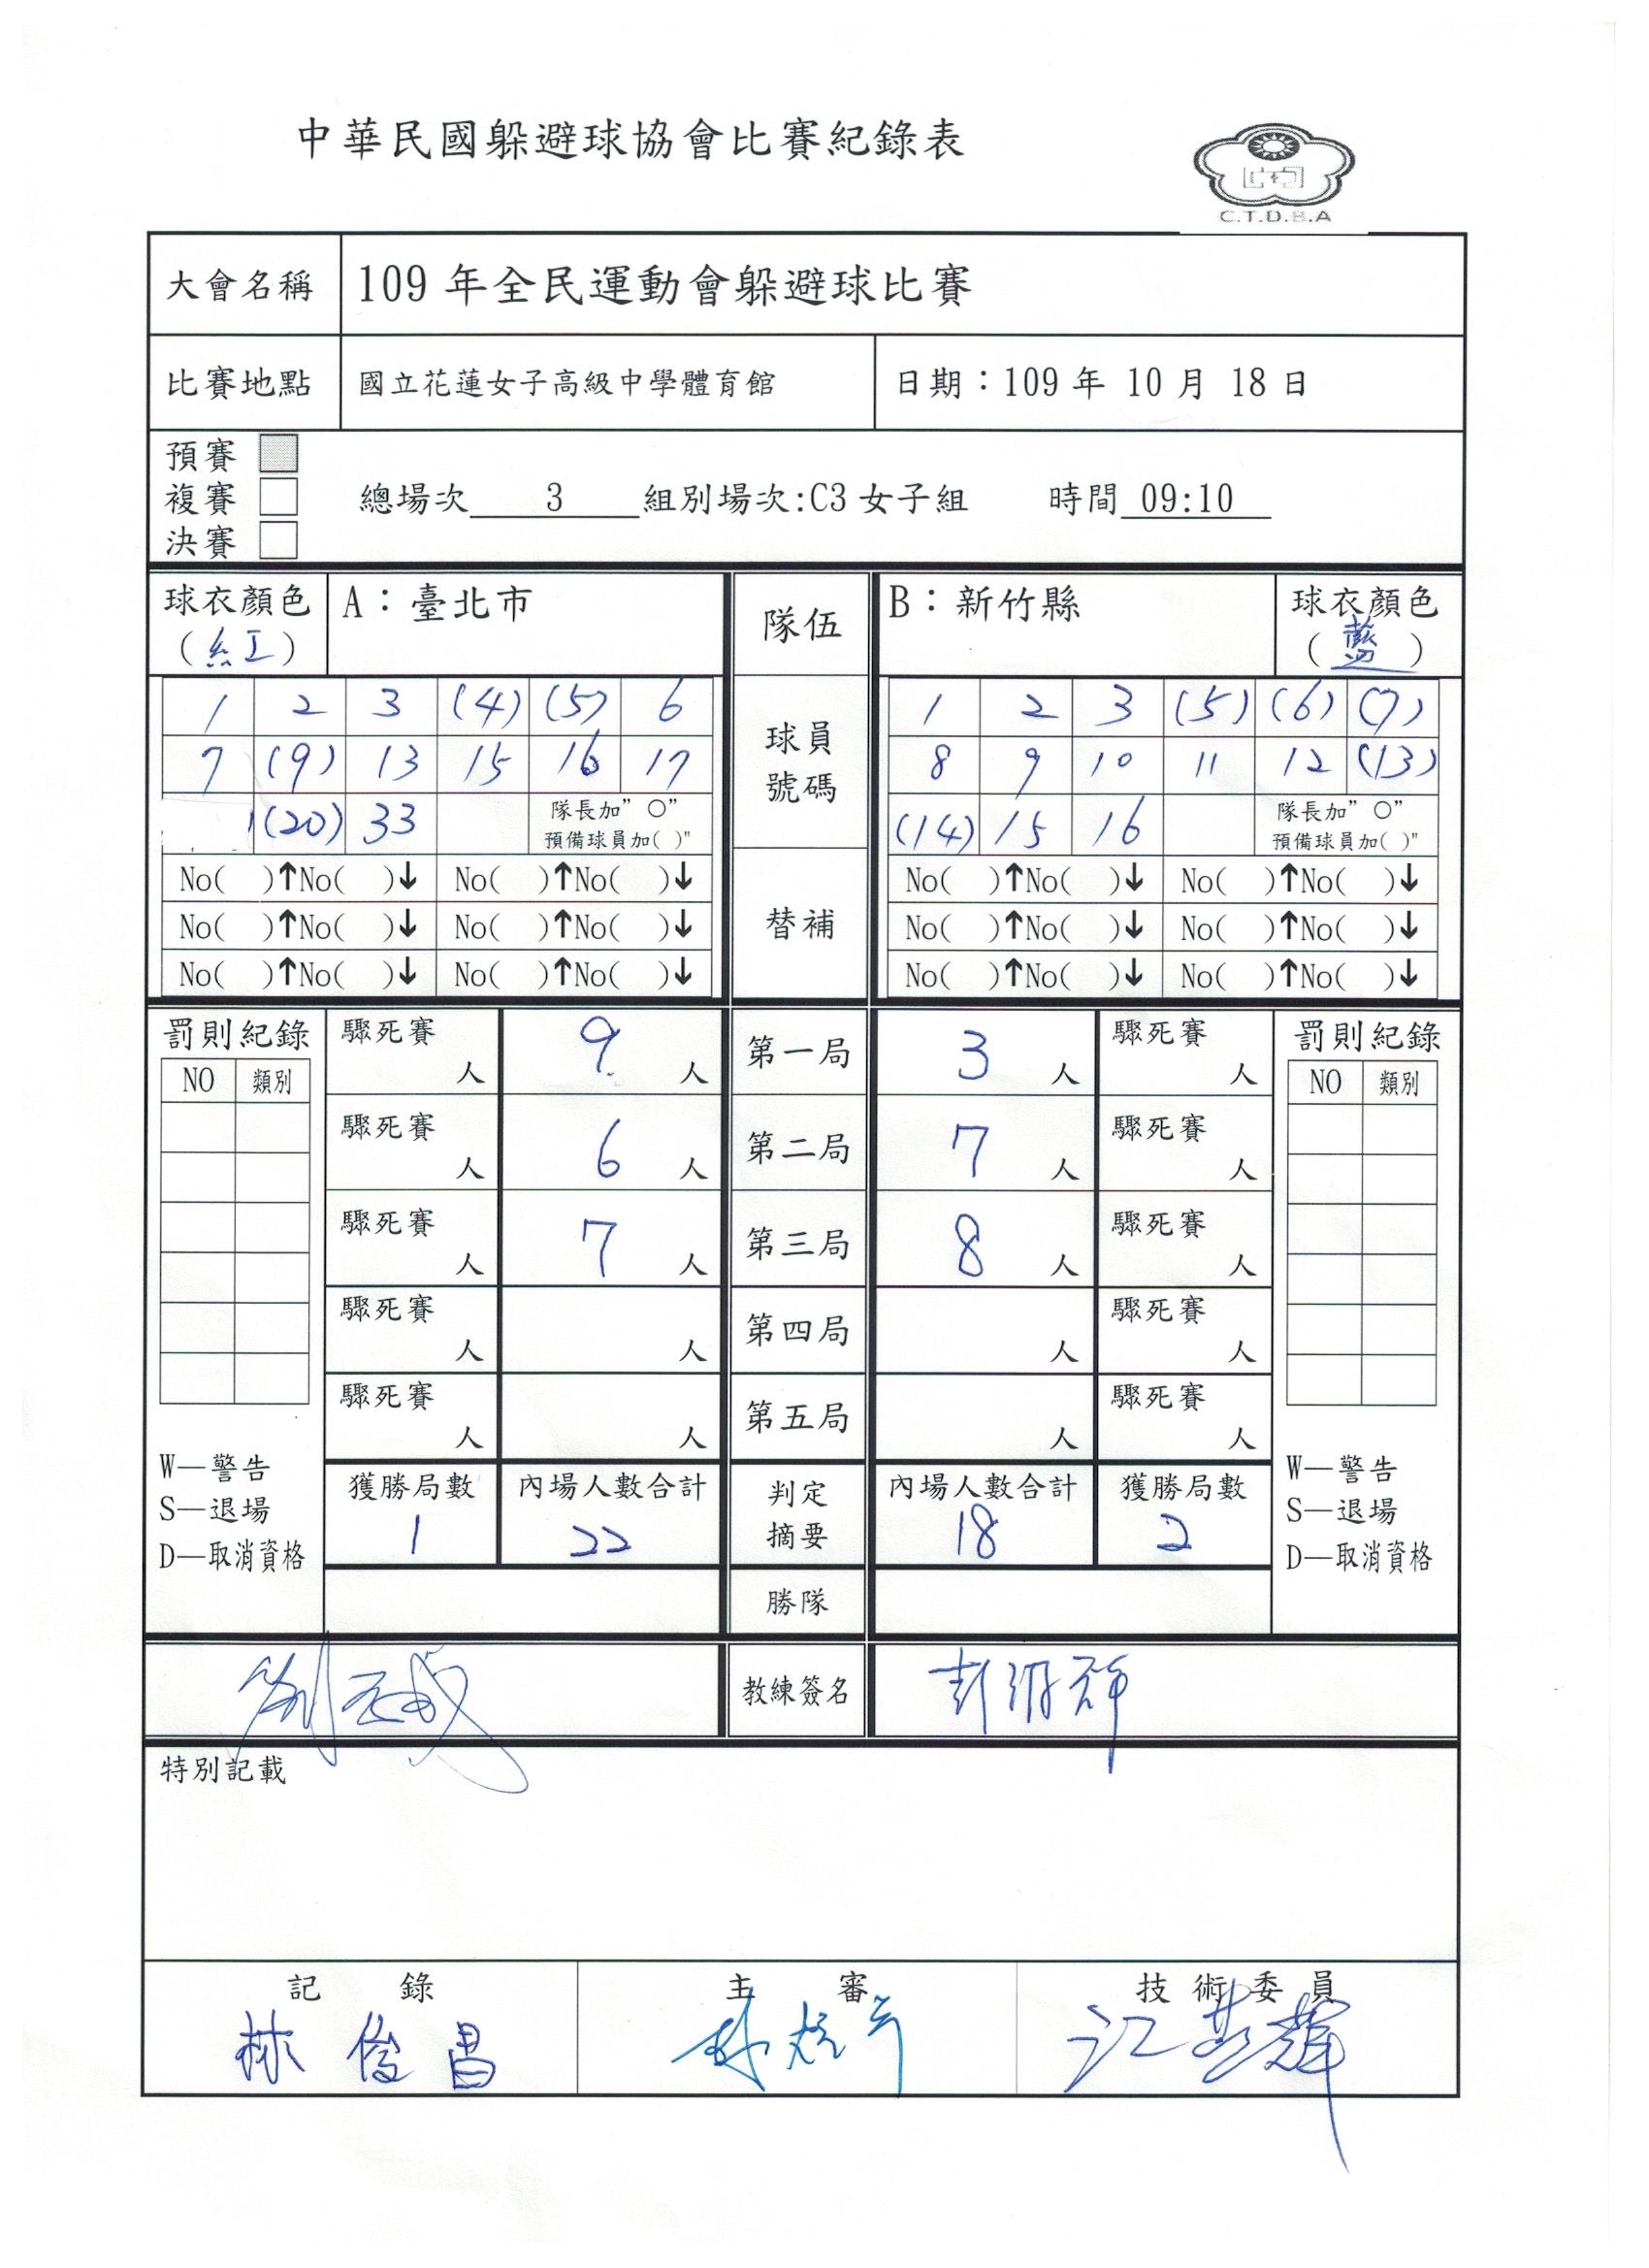 中華民國躲避球協會比賽紀錄表
C.T.D.B.A
大會名稱 109 年全民運動會躲避球比賽
比賽地點 國立花蓮女子高級中學體育館 日期：109 年 10 月 18 日
預賽
複賽 總場次 3 組別場次:C3 女子組 時間 09:10
決賽
球衣顏色 A：臺北市 隊伍 B：新竹縣 球衣顏色
(紅) (藍)
1 2 3 (4) (5) 6 球員 1 2 3 (5) (6) (7)
7 (9) 13 15 16 17 號碼 8 9 10 11 12 (13)
(20) 33 隊長加"○" (14) 15 16 隊長加"○"
預備球員加( )" 預備球員加( )"
No( )↑No( )↓ No( )↑No( )↓ No( )↑No( )↓ No( )↑No( )↓
No( )↑No( )↓ No( )↑No( )↓ 替補 No( )↑No( )↓ No( )↑No( )↓
No( )↑No( )↓ No( )↑No( )↓ No( )↑No( )↓ No( )↑No( )↓
罰則紀錄 驟死賽 人 9 人 第一局 3 人 驟死賽 人 罰則紀錄
NO 類別 NO 類別
驟死賽 人 6 人 第二局 7 人 驟死賽 人
驟死賽 人 7 人 第三局 8 人 驟死賽 人
驟死賽 人 人 第四局 人 驟死賽 人
驟死賽 人 人 第五局 人 驟死賽 人
W—警告 W—警告
S—退場 S—退場
D—取消資格 D—取消資格
獲勝局數 內場人數合計 判定 內場人數合計 獲勝局數
1 22 摘要 18 2
勝隊
教練簽名
特別記載
記 錄 主 審 技 術 委 員
林俊昌